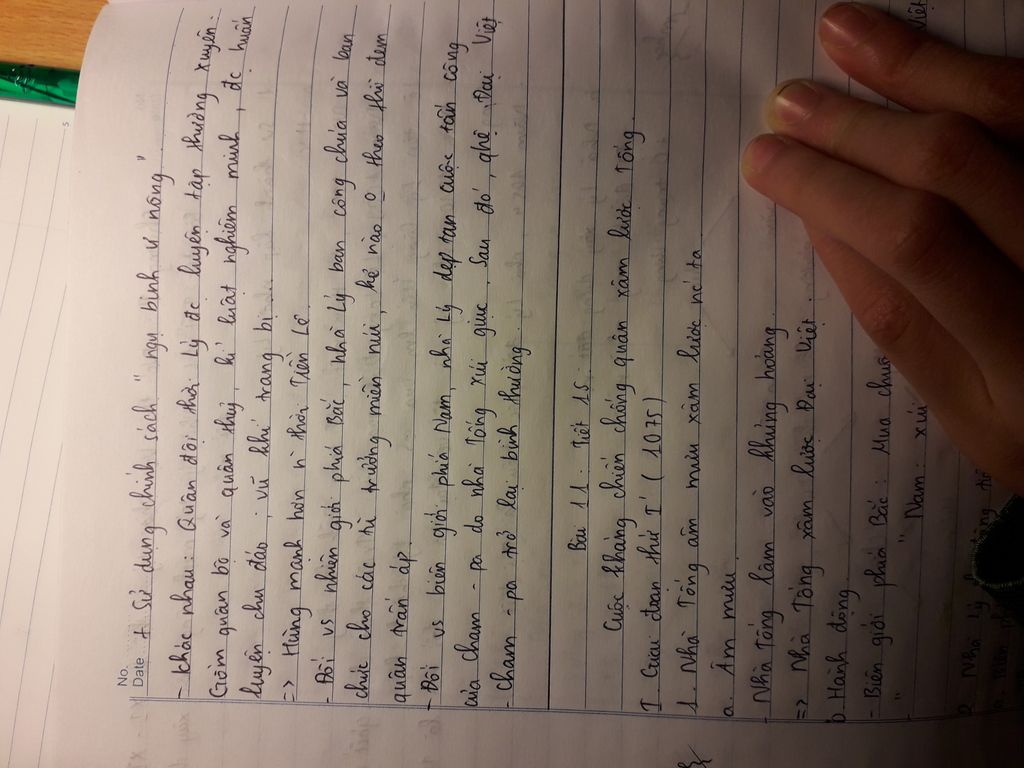 No.
Date
+ Sử dụng chính sách "ngụ binh ư nông"
- Khác nhau: Quân đội thời Lý đc luyện tập thường xuyên.
Gồm quân bộ và quân thuỷ, kỉ luật nghiêm minh, đc huấn
luyện chu đáo; vũ khí trang bị...
=> Hùng mạnh hơn n` thời Tiền Lê.
- Đối vs nhiên giới phía Bắc, nhà Lý ban công chúa và ban
chức cho các tù trưởng miền núi, kẻ nào o theo thì đem
quân trấn áp.
- Đối vs biên giới phía Nam, nhà Lý dẹp tan cuộc tấn công
của Cham-pa do nhà Tống xúi giục. Sau đó, qhệ Đại Việt
- Cham-pa trở lại bình thường.
Bài 11: Tiết 15:
Cuộc kháng chiến chống quân xâm lược Tống.
I. Giai đoạn thứ I (1075)
1. Nhà Tống âm mưu xâm lược nc ta
a. Âm mưu.
- Nhà Tống lâm vào khủng hoảng.
=> Nhà Tống xâm lược Đại Việt.
b. Hành động
- Biên giới phía Bắc: Mua chuộ
" " Nam: xúi
Việt
2. Nhà Lý